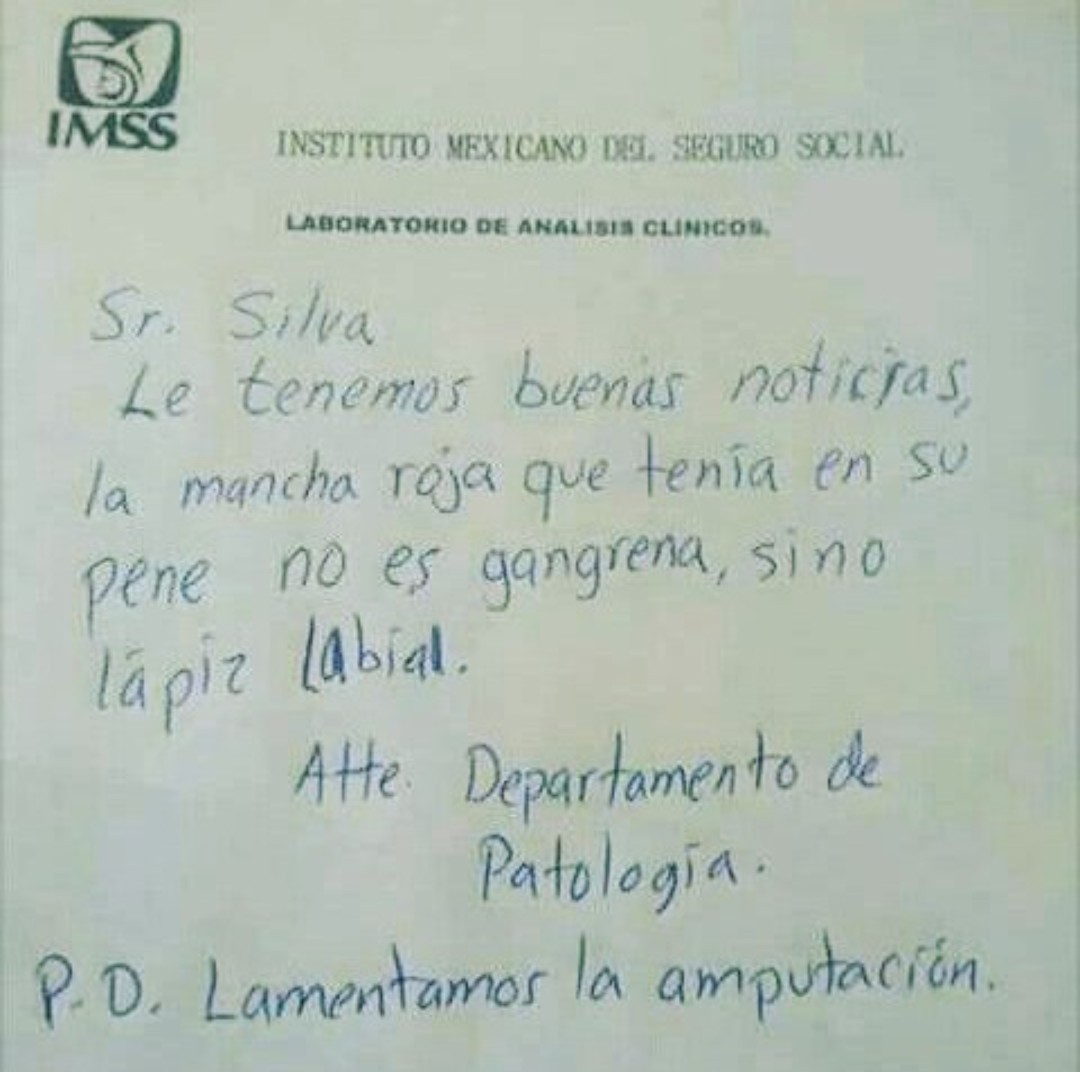 IMSS
INSTITUTO MEXICANO DEL SEGURO SOCIAL
LABORATORIO DE ANALISIS CLINICOS.
Sr. Silva
Le tenemos buenas noticias,
la mancha roja que tenía en su
pene no es gangrena, sino
lápiz labial.
Atte. Departamento de
Patología.
P.D. Lamentamos la amputación.